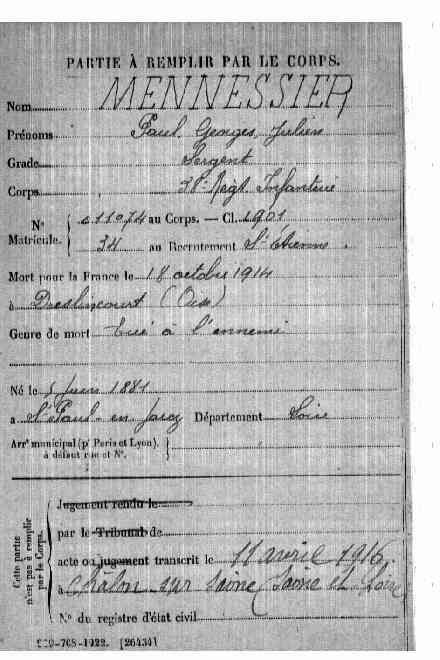 PARTIE À REMPLIR PAR LE CORPS.
Nom MENNESSIER
Prénoms Paul Georges Julien
Grade Sergent
Corps 38e Régt Infanterie
N° 011074 au Corps. — Cl. 1901
Matricule. 34 au Recrutement St Étienne.
Mort pour la France le 18 octobre 1914
à Dreslincourt (Oise)
Genre de mort tué à l'ennemi
Né le 5 Juin 1881
a St Paul en Jarez Département Loire
Arrt municipal (pr Paris et Lyon),
à défaut rue et N°.
Cette partie
n'est pas à remplir
par le Corps.
Jugement rendu le
par le Tribunal de
acte ou jugement transcrit le 11 avril 1916
à Chalon sur Saône (Saône et Loire
N° du registre d'état civil
-708-1922. [26434]